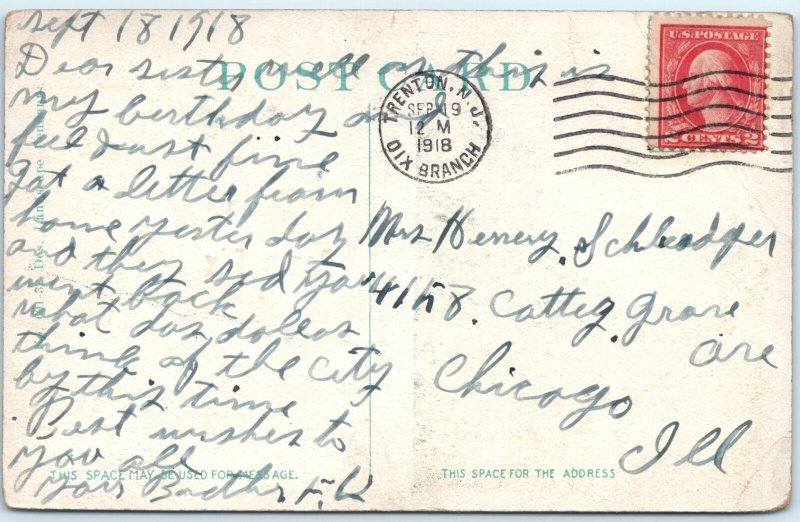 Sept 18 1918
POST CARD
Dear sister well as this is
my birthday and I
feel Just fine
Got a letter from
home yesterday
and they sed you
went back
what dos
think of the city
by this time
Best wishes to
you all
Your Brother
TRENTON, N.J.
SEP 19
12 M
1918
DIX BRANCH
U.S. POSTAGE
2 CENTS 2
Mrs Henery
Cotteg Grove
Ave
Chicago
Ill
THIS SPACE MAY BE USED FOR MESSAGE.
THIS SPACE FOR THE ADDRESS